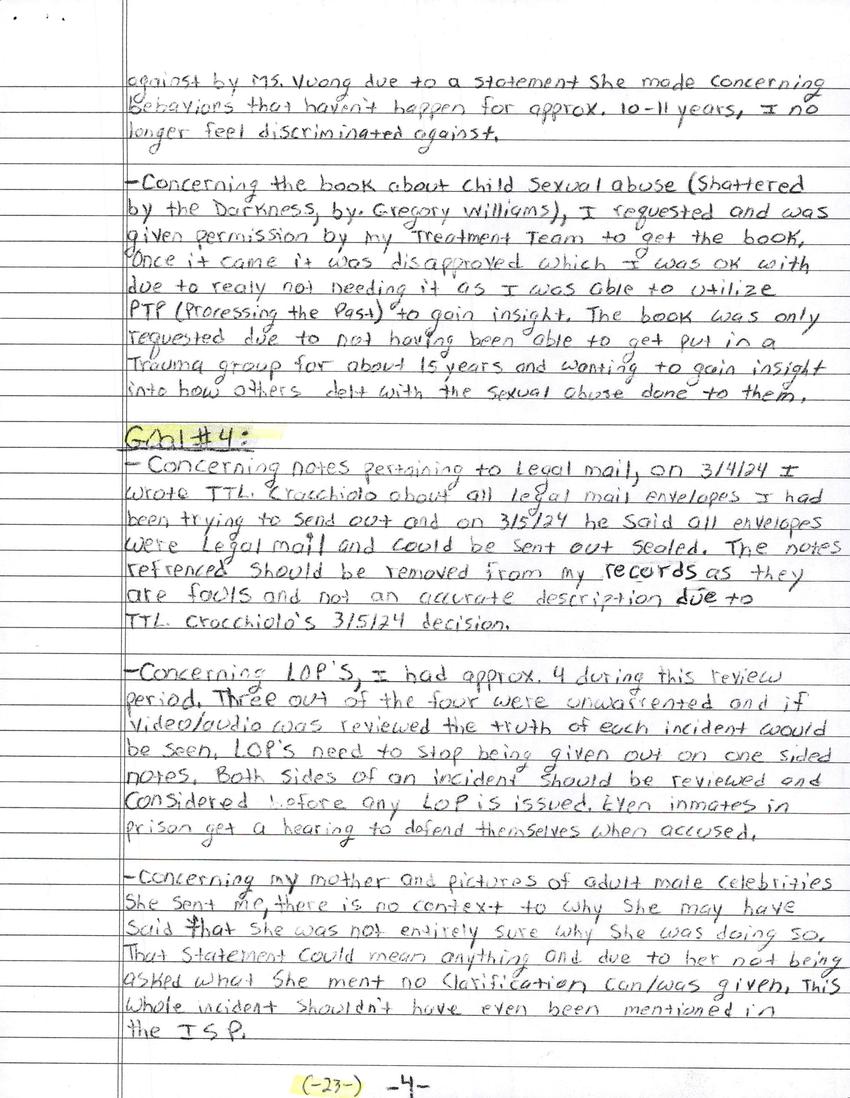 against by Ms. Vuong due to a statement she made concerning
Behaviors that haven't happen for approx. 10-11 years, I no
longer feel discriminated against.
-Concerning the book about child sexual abuse (Shattered
by the Darkness, by. Gregory Williams), I requested and was
given permission by my Treatment Team to get the book,
Once it came it was disapproved which I was ok with
due to realy not needing it as I was able to utilize
PTP (Processing the Past) to gain insight. The book was only
requested due to not having been able to get put in a
Trauma group for about 15 years and wanting to gain insight
into how others delt with the sexual abuse done to them.
Goal #4:
- Concerning notes pertaining to Legal mail, on 3/4/24 I
wrote TTL. Cracchiolo about all legal mail envelopes I had
been trying to send out and on 3/5/24 he said all envelopes
were Legal mail and could be sent out sealed. The notes
refrenced should be removed from my records as they
are fouls and not an accurate description due to
TTL. Cracchiolo's 3/5/24 decision.
-Concerning LOP'S, I had approx. 4 during this review
period. Three out of the four were unwarrented and if
video/audio was reviewed the truth of each incident would
be seen. LOP's need to stop being given out on one sided
notes. Both sides of an incident should be reviewed and
considered before any LOP is issued. Even inmates in
prison get a hearing to defend themselves when accused.
-Concerning my mother and pictures of adult male celebrities
She sent me, there is no context to why she may have
said that she was not entirely sure why she was doing so.
That statement could mean anything and due to her not being
asked what she ment no clarification can/was given. This
whole incident shouldn't have even been mentioned in
the ISP.
(-23-) -4-